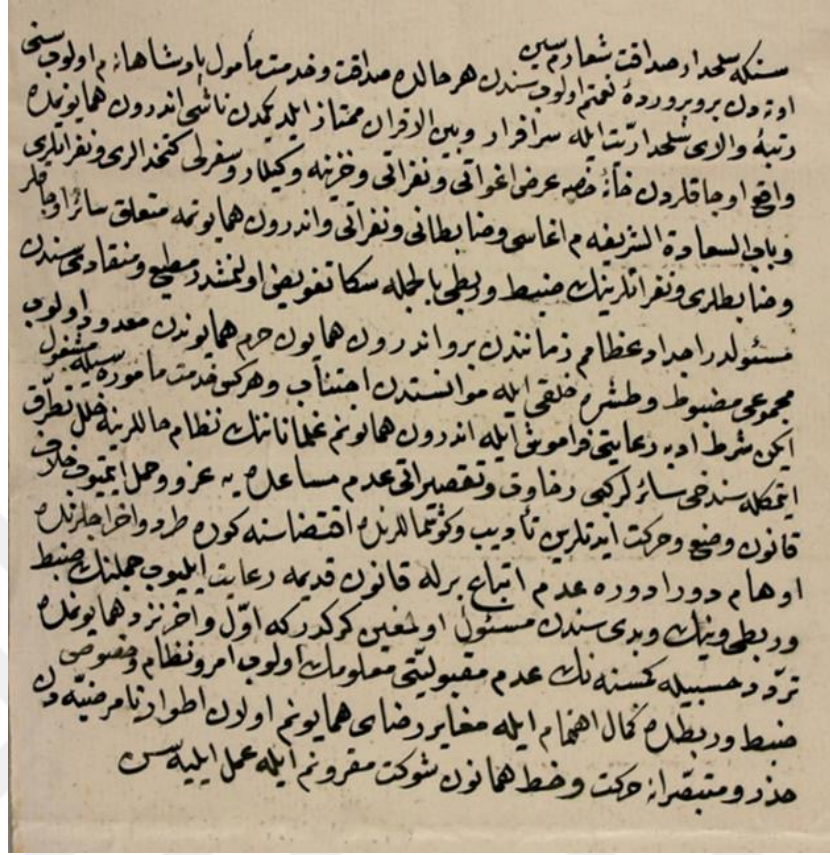 سنكه سلحدار صداقت شعارم سين
اوته دن برو پروردۀ نعمتم اولوب سندن هر حالده صداقت و خدمت مأمول پادشاهانه م اولوب سنى
رتبۀ والاى سلحدارىت ايله سرافراز و بين الاقران ممتاز ايلديكمدن ناشى اندرون همايونمده
واقع اوجاقلردن خانۀ خاصه عرض اغواتى و نفراتى و خزينه و كيلار و سفرلى كتخدالرى و نفراتلرى
و باب السعادة الشريفه م اغاسى و ضابطانى و نفراتى و اندرون همايونمه متعلق سائر اوجاقلر
و ضابطلرى و نفراتلرينك ضبط و ربطى بالجمله سكا تفويض اولنمشدر مطيع و منقادى سندن
مسئولدر اجداد عظامم زمانندن برو اندرون همايون حرم همايوندن معدود اولوب
مجموعى مضبوط و طشره خلقى ايله موانستدن اجتناب و هركس خدمت مأموره سيله مشغول
ايكن شرط ادب رعايتى فراموش ايله اندرون همايونم غلماناتنك نظام حاللرينه خلل تطرق
ايتمكله سن دخى سائرلر كبى رخاوت و تقصيراتى عدم مساعده يه عزو و حمل ايتميوب خلاف
قانون وضع و حركت ايدنلرين تأديب و كوتماللرنده اقتضاسنه كوره طرد و اخراجلرنده
اوهام دورادوره عدم اتباع برله قانون قديمه رعايت ايليوب جمله نك ضبط
و ربطى و نيك و بدى سندن مسئول اولمغين كركدركه اول و اخر نزد همايونمده
تردد حسبيله كمسنه نك عدم مقبوليتى معلومك اولوب امر و نظام و خصوص
ضبط و ربطده كمال اهتمام ايله مغاير رضاى همايونم اولان اطوار نامرضيه دن
حذر و متبصرانه حركت و خط همايون شوكت مقرونم ايله عمل ايليه سن